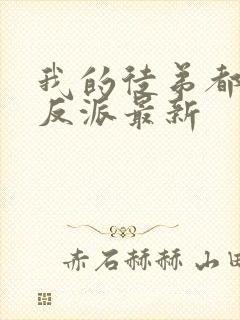 我的徒弟都
反派最新
赤石赫赫山田